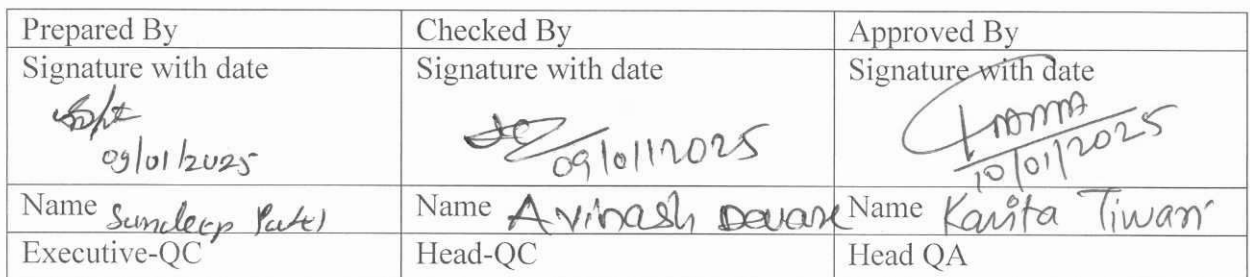 Prepared By Checked By Approved By
Signature with date Signature with date Signature with date
09/01/2025 09/01/2025 10/01/2025
Name Sundeep Patel Name Avinash Devare Name Kavita Tiwari
Executive-QC Head-QC Head QA